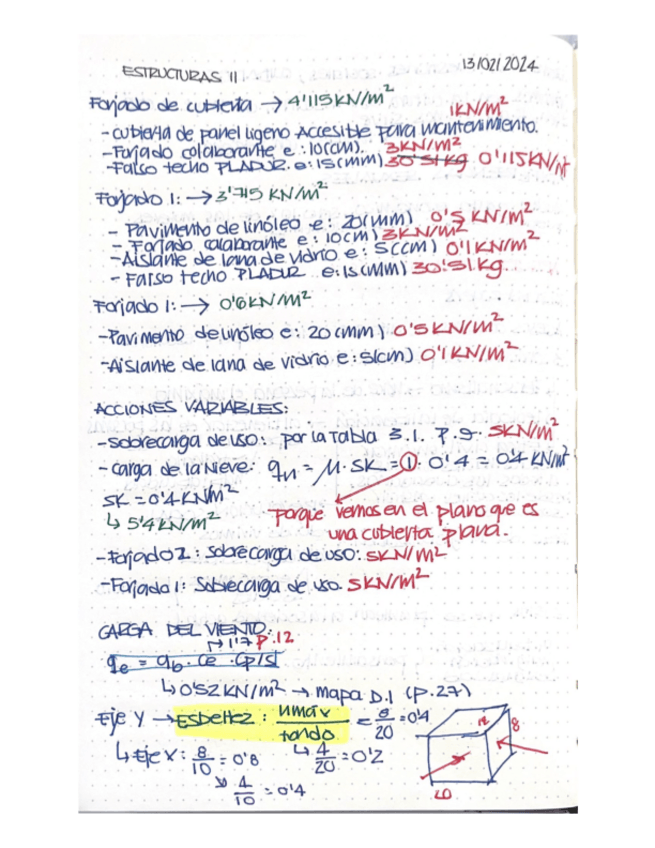 ESTRUCTURAS II 13/02/2024
Forjado de cubierta → 4'115 KN/m²
1KN/m²
- cubierta de panel ligero Accesible para mantenimiento.
- Forjado colaborante e: 10(cm). 3KN/m²
- Falso techo PLADUR. e: 15(mm) 30'51kg 0'115KN/m²
Forjado 1: → 3'715 KN/m²
- Pavimento de linóleo e: 20(mm) 0'5 KN/m²
- Forjado colaborante e: 10cm) 3KN/m²
- Aislante de lana de vidrio e: 5(cm) 0'1KN/m²
- Falso techo PLADUR e: 15(mm) 30'51kg.
Forjado 1: → 0'6KN/m²
- Pavimento de linóleo e: 20(mm) 0'5KN/m²
- Aislante de lana de vidrio e: 5(cm) 0'1KN/m²
ACCIONES VARIABLES:
- Sobrecarga de uso: por la Tabla 3.1. P.9. 5KN/m²
- carga de la Nieve: qn = μ · SK = 1 · 0'4 = 0'4 KN/m²
SK = 0'4KN/m²
↳ 5'4KN/m²
Porque vemos en el plano que es
una cubierta plana.
- Forjado 2: Sobrecarga de uso: 5KN/m²
- Forjado 1: Sobrecarga de uso. 5KN/m²
CARGA DEL VIENTO:
↦ 1'7 P.12
qe = qb · Ce · Cp/s
↳ 0'52 KN/m² → mapa D.1 (P.27)
Eje Y → Esbeltez: Hmáx / fondo = 8/20 = 0'4
↳ Eje X: 8/10 = 0'8 ↳ 4/20 = 0'2
↘ 4/10 = 0'4
8
10